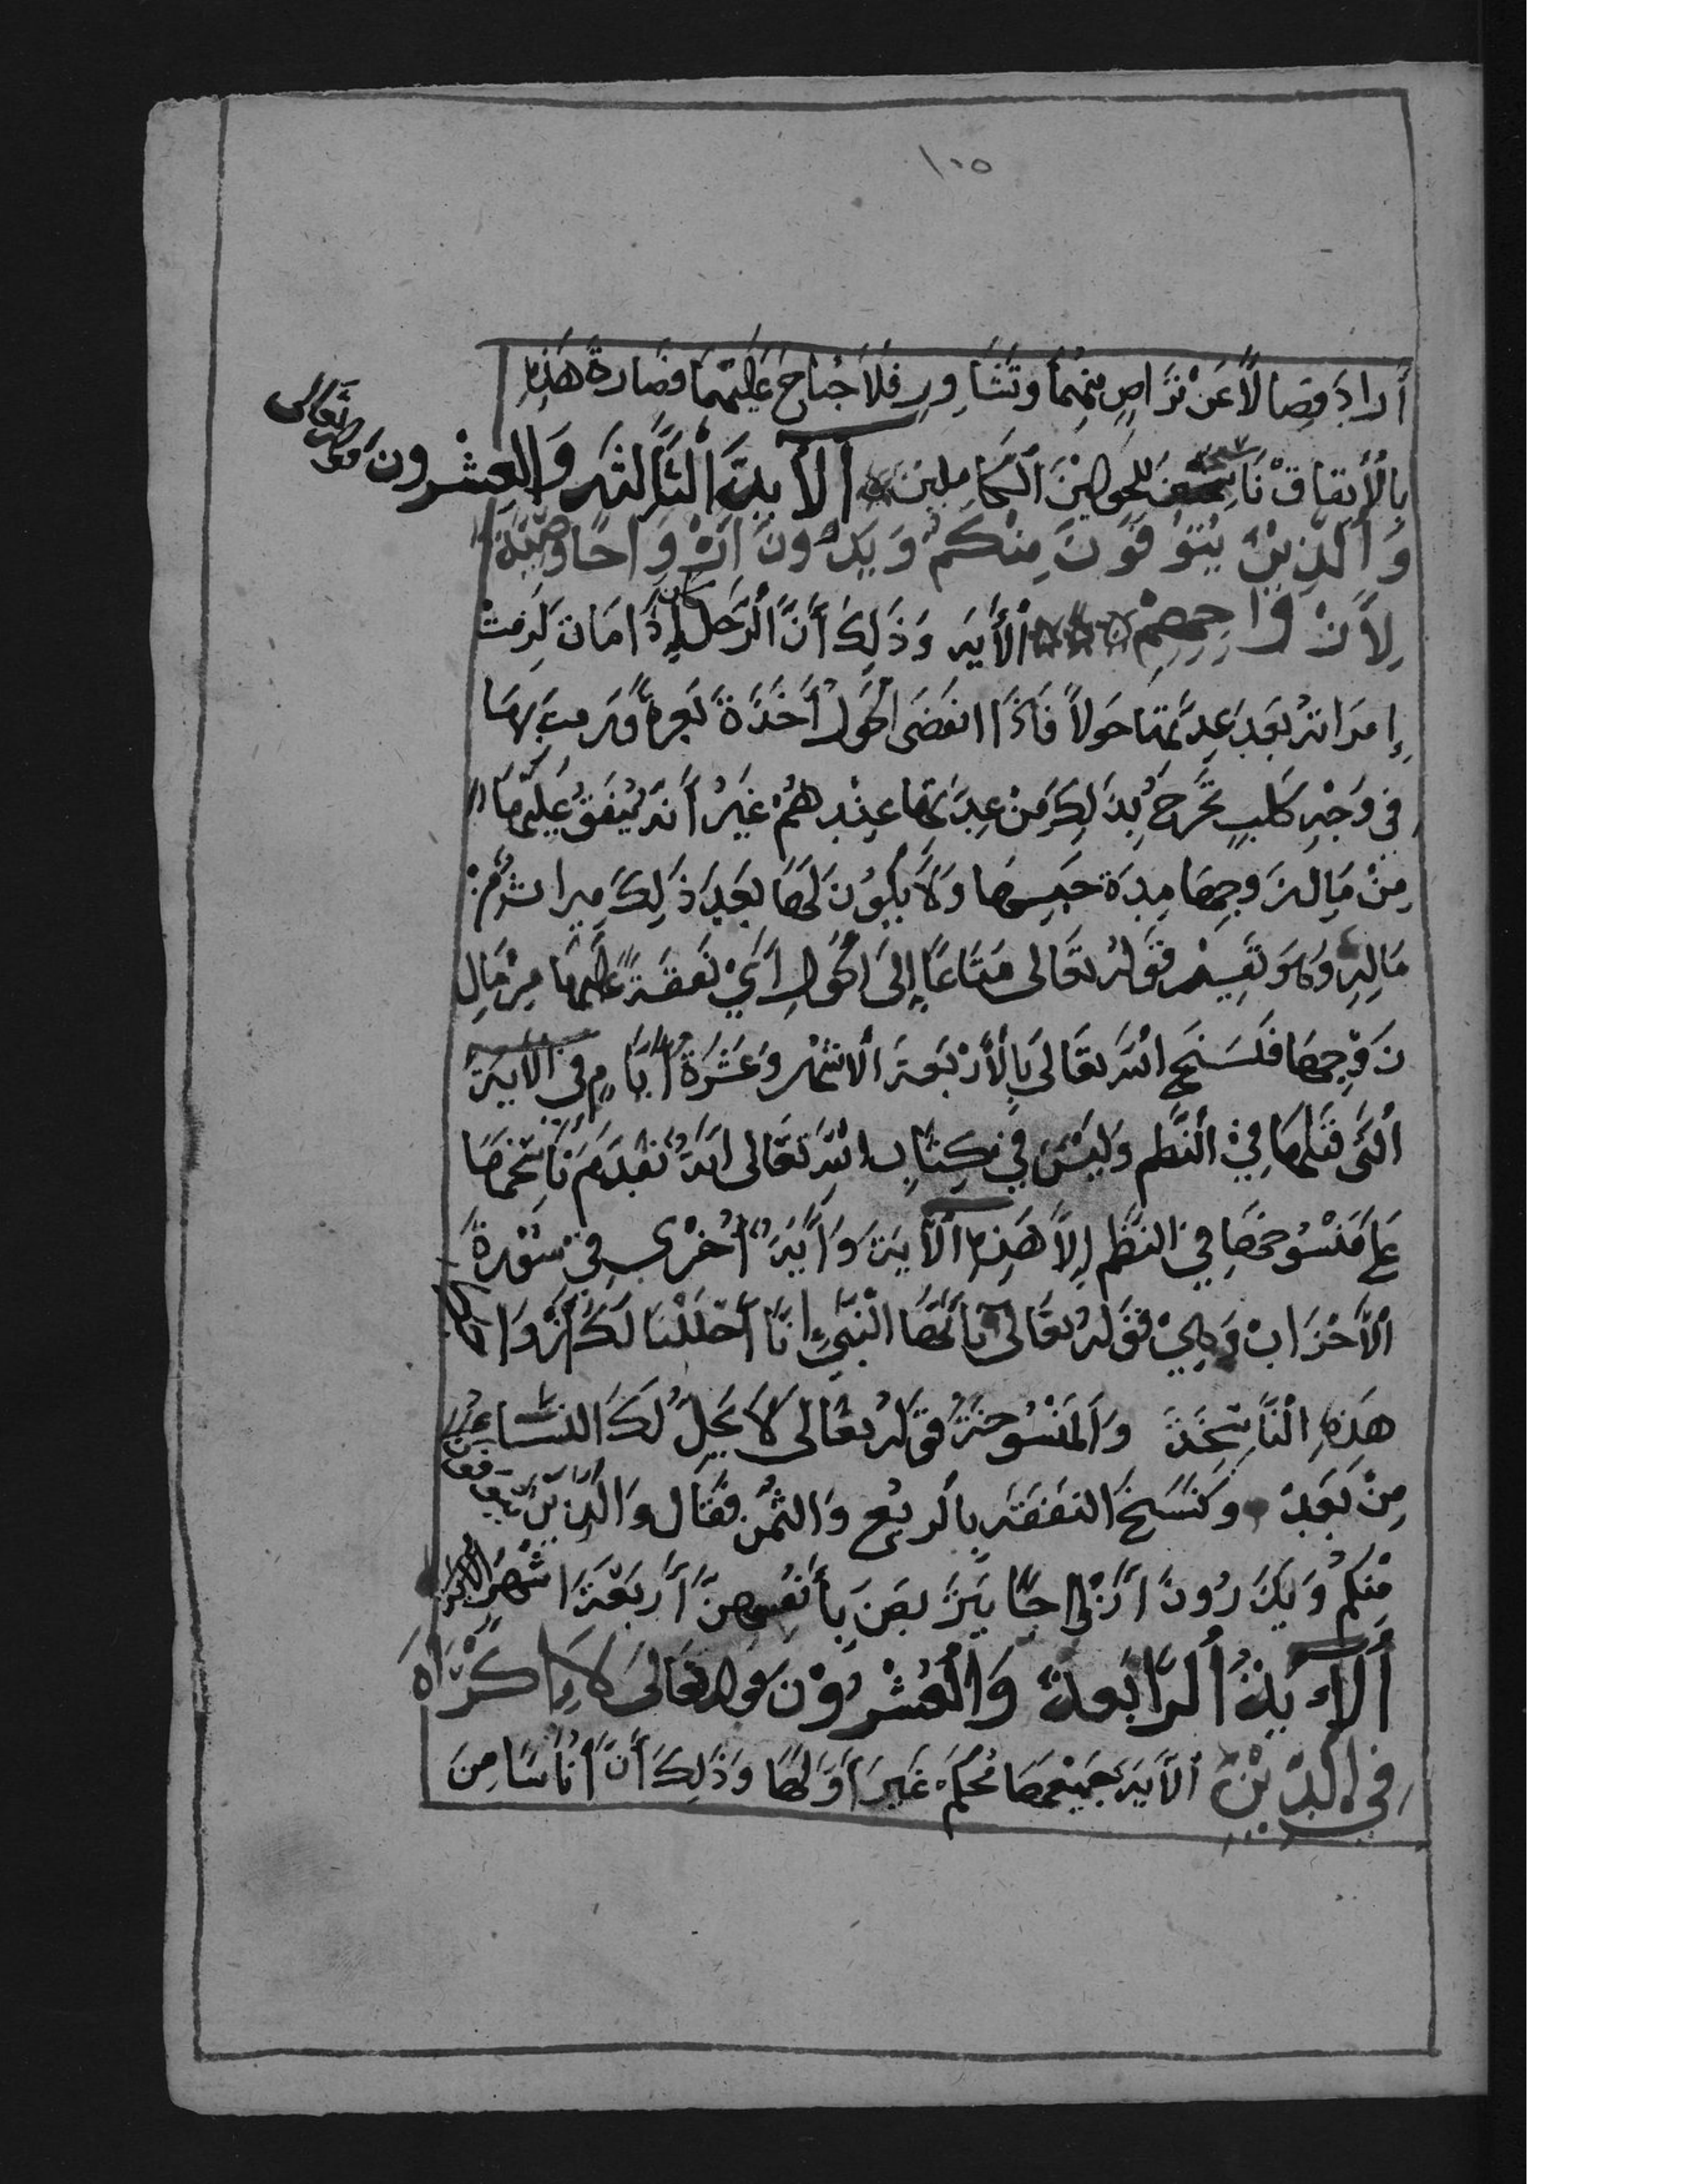 ١٠٥
أَرادَ فِصالاً عَنْ تَرَاضٍ مِنْهُمَا وَتَشَاوِرِ فَلَا جُناحَ عَلَيْهِمَا فصَارة هَٰذِهِ
بِالْأِتفاقْ نَاسِخَة لِلْحَوْلَيْنِ الْكَامِلِين الآيَةُ الثَّالِثَه وَالعِشْرون قوله تعالى
وَالَّذِيْنَ يُتَوَفَّوْنَ مِنْكُمْ وَيَذَرُونَ أَزْوَاجًا وَصِيَّةً
لِأَزْوَاجِهِمْ الْأَيَه وَذَلِكَ أَنَّ الْرَجُل كان إِذَا مَات لَزِمَتْ
إِمرَاتهُ بَعْدَ عِدَّتها حَولاً فَاذَا انقَضَى الْحَوْلُ أَخَذَةْ بَعرةً وَرمت بِهَا
في وَجْهِ كَلبٍ تَخْرَجُ بِذَلِكَ مِنْ عِدَّتها عِنْدِهُمْ غَيْرُ أَنهُ يُنفَقُ عَلَيْهَا
مِنْ مَالِ زَوجِهَا مِدة حَبسِهَا وَلَا يَكُوُن لَهَا بَعْدَ ذَلِكَ مِيراث مِنْ
مَالِهِ وَهوَ تفسِيْر قَوْلهُ تعَالى مَتَاعًا إِلَى الْحَوْلِ أَيْ نَفَقَةً عَلَيْهَا مِنْ مَالِ
زَوْجِهَا فَنَسَخَ اللَّه تعَالى بِالْأَرْبَعَةَ الاشْهُر وَعَشْرَةُ أَيَّامٍ في الآيَةَ
الْتَّى قَبْلهَا فِيْ الْنَّظم وَلَيْسَ فِي كِتَابِ اللَّهِ تَعَالى ايَةُ تقَدم نَاسِخهَا
عَلَى مَنْسُوخهَا فِي النَظم إِلَّا هَذِهِ الْآيَة وَآيَةً أُخْرَى فِي سُوْرةَ
الْأَحْزَابْ وَهِيْ قَوْلهُ تَعَالى يَا أَيُّهَا الْنَّبِيُّ إِنَّا أَحْلَلْنَا لَكَ أَزْوَاجَك
هَذِهِ الْنَّاسِخَة وَالْمَنْسُوخَةُ قَوْلهُ تعَالى لَا يَحِلُّ لَكَ النساءُ
مِنْ بَعْدْ وَنَسَخَ النفَقة بِالْربُع وَالثُّمُنْ فَقَال وَالَّذِيْنَ يتوفون
مِنْكُمْ وَيَذَرُونَ أَزْوَاجًا يَتَرَبصَن بِأَنْفُسِهِنَّ أَربَعْةَ اشْهُر الآية
أَلآيَةُ الْرَّابعَةُ وَالْعُشْرُوْنَ قوله تَعَالَى لَا إِكْرَاهَ
فِي الْدِّيْنْ الآيَة جَمِيْعهَا مُحْكَمْ غَيرَ أَوَلِهَا وَذَلِكَ أَنَّ أُنَاسًا مِنَ